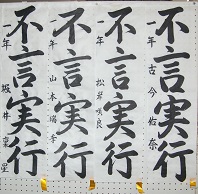 不言実行
一年 古今佑奈
不言実行
一年
不言実行
一年 山本瑞季
不言実行
一年 坂井